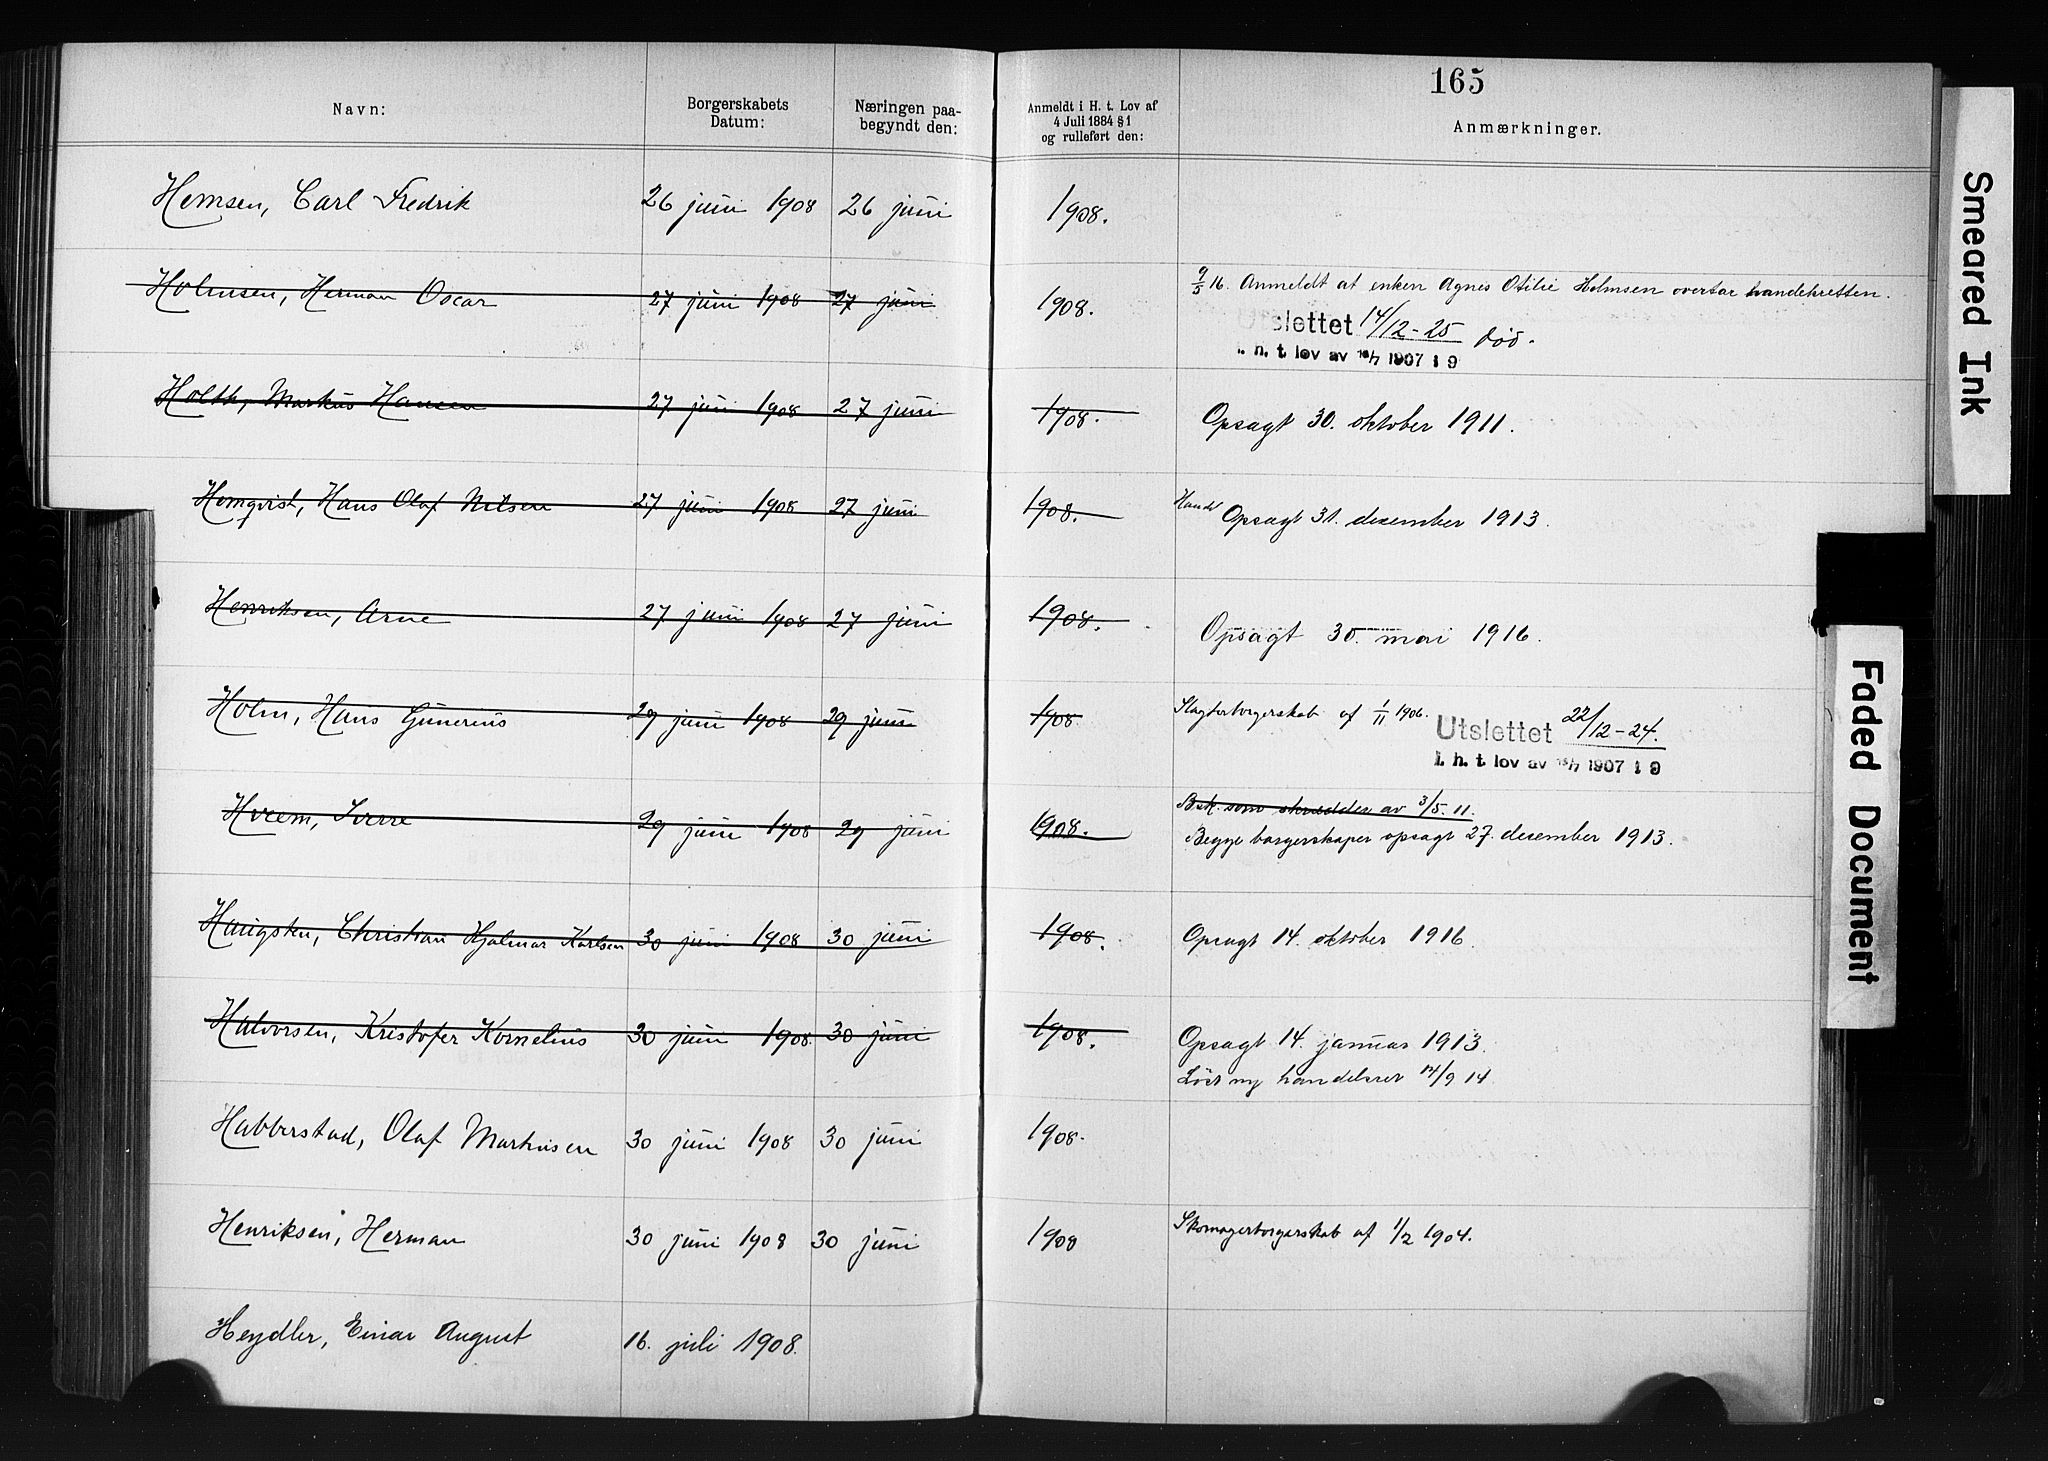 165
Navn: Borgerskabets Datum: Næringen paa-begyndt den: Anmeldt i H. t. Lov af 4 Juli 1884 § 1 og rulleført den: Anmærkninger.
Hemsen, Carl Fredrik 26 juni 1908 26 juni 1908.
Holmsen, Herman Oscar 27 juni 1908 27 juni 1908. 9/5 16. Anmeldt at enken Agnes Otilie Holmsen overtar handelsretten.
Utslettet 14/12-25 død.
i. h. t. lov av 16/7 1907 § 9
Holth, Markus Hansen 27 juni 1908 27 juni 1908. Opsagt 30. oktober 1911.
Homqvist, Hans Olaf Nilsen 27 juni 1908 27 juni 1908. Handl Opsagt 31. desember 1913.
Henriksen, Arne 27 juni 1908 27 juni 1908. Opsagt 30. mai 1916.
Holm, Hans Gunerius 29 juni 1908 29 juni 1908 Slagterborgerskab af 1/11 1906.
Utslettet 22/12-24.
i. h. t. lov av 16/7 1907 § 9
Hveem, Sverre 29 juni 1908 29 juni 1908. Bsk. som skrædder av 3/5. 11.
Begge borgerskaper opsagt 27. desember 1913.
Haugsten, Christian Hjalmar Karlsen 30 juni 1908 30 juni 1908. Opsagt 14. oktober 1916.
Halvorsen, Kristofer Kornelius 30 juni 1908. 30 juni 1908. Opsagt 14. januar 1913.
Løst ny handelsret /9 14
Habberstad, Olaf Markusen 30 juni 1908 30 juni 1908.
Henriksen, Herman 30 juni 1908 30 juni 1908 Skomagerborgerskab af 1/2 1904.
Heydler, Einar August 16. juli 1908.
Smeared Ink
Faded Document